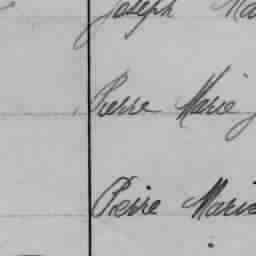 Joseph Ma
Pierre Marie J
Pierre Marie